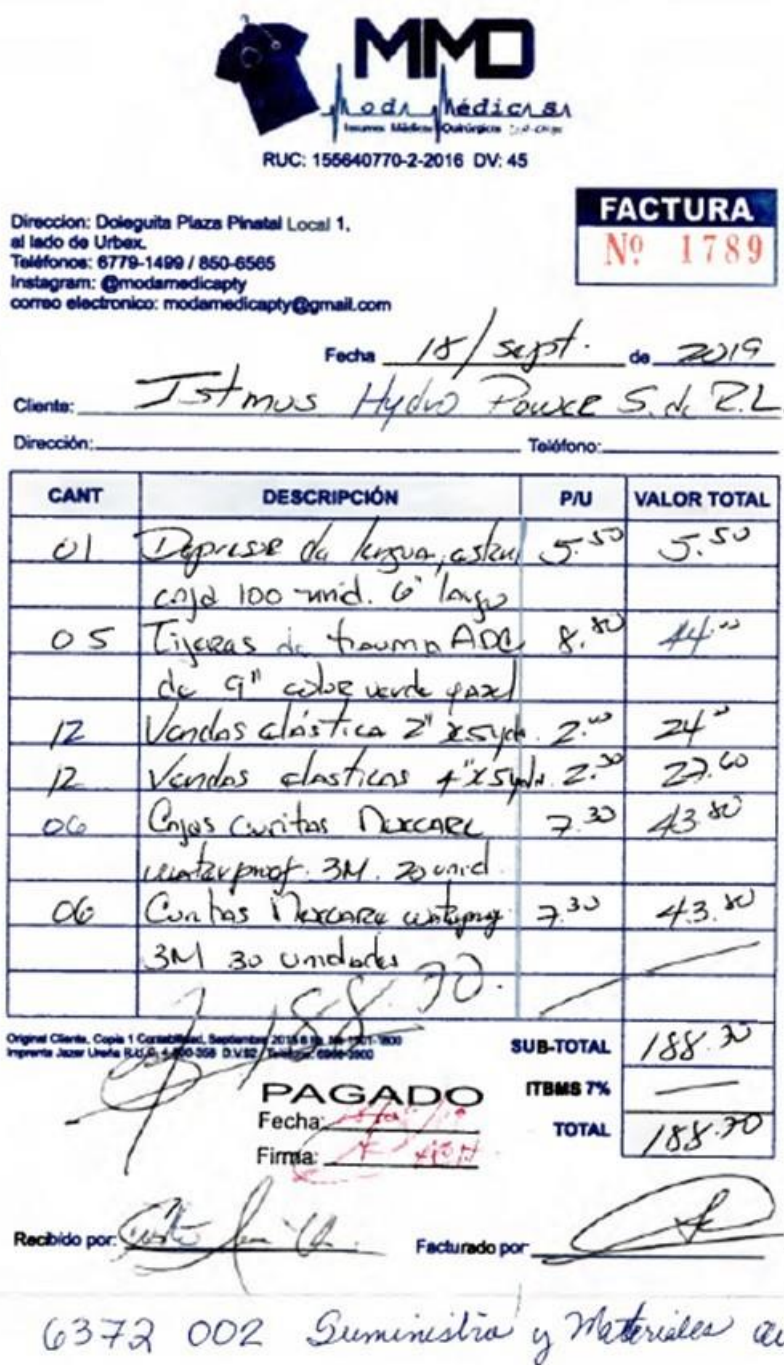 MMD
Moda Médicas
Insumos Médicos Quirúrgicos
RUC: 155640770-2-2016 DV: 45
Direccion: Doleguita Plaza Pinatal Local 1,
al lado de Urbex.
Teléfonos: 6779-1499 / 850-6565
Instagram: @modamedicapty
correo electronico: modamedicapty@gmail.com
FACTURA
Nº 1789
Fecha 18/sept. de 2019
Cliente: Istmus Hydro Power S. de R.L
Dirección: Teléfono:
CANT DESCRIPCIÓN P/U VALOR TOTAL
01 Depresor de lengua, 5.50 5.50
caja 100 unid. 6" largo
05 Tijeras de trauma ADC 8.80 44.00
de 9" color verde
12 Vendas elástica 2" x 5yds. 2.00 24.00
12 Vendas elasticas 4" x 5yds. 2.30 27.60
06 Cajas curitas Nexcare 7.30 43.80
waterproof. 3M. 20 unid.
06 Curitas Nexcare waterproof 7.30 43.80
3M 30 unidades
188.70.
Original Cliente, Copia 1 Contabilidad, Septiembre
Imprenta Jazer Ureña R.U.C.
SUB-TOTAL 188.70
ITBMS 7% —
TOTAL 188.70
PAGADO
Fecha:
Firma:
Recibido por: Facturado por
6372 002 Suministro y Materiales